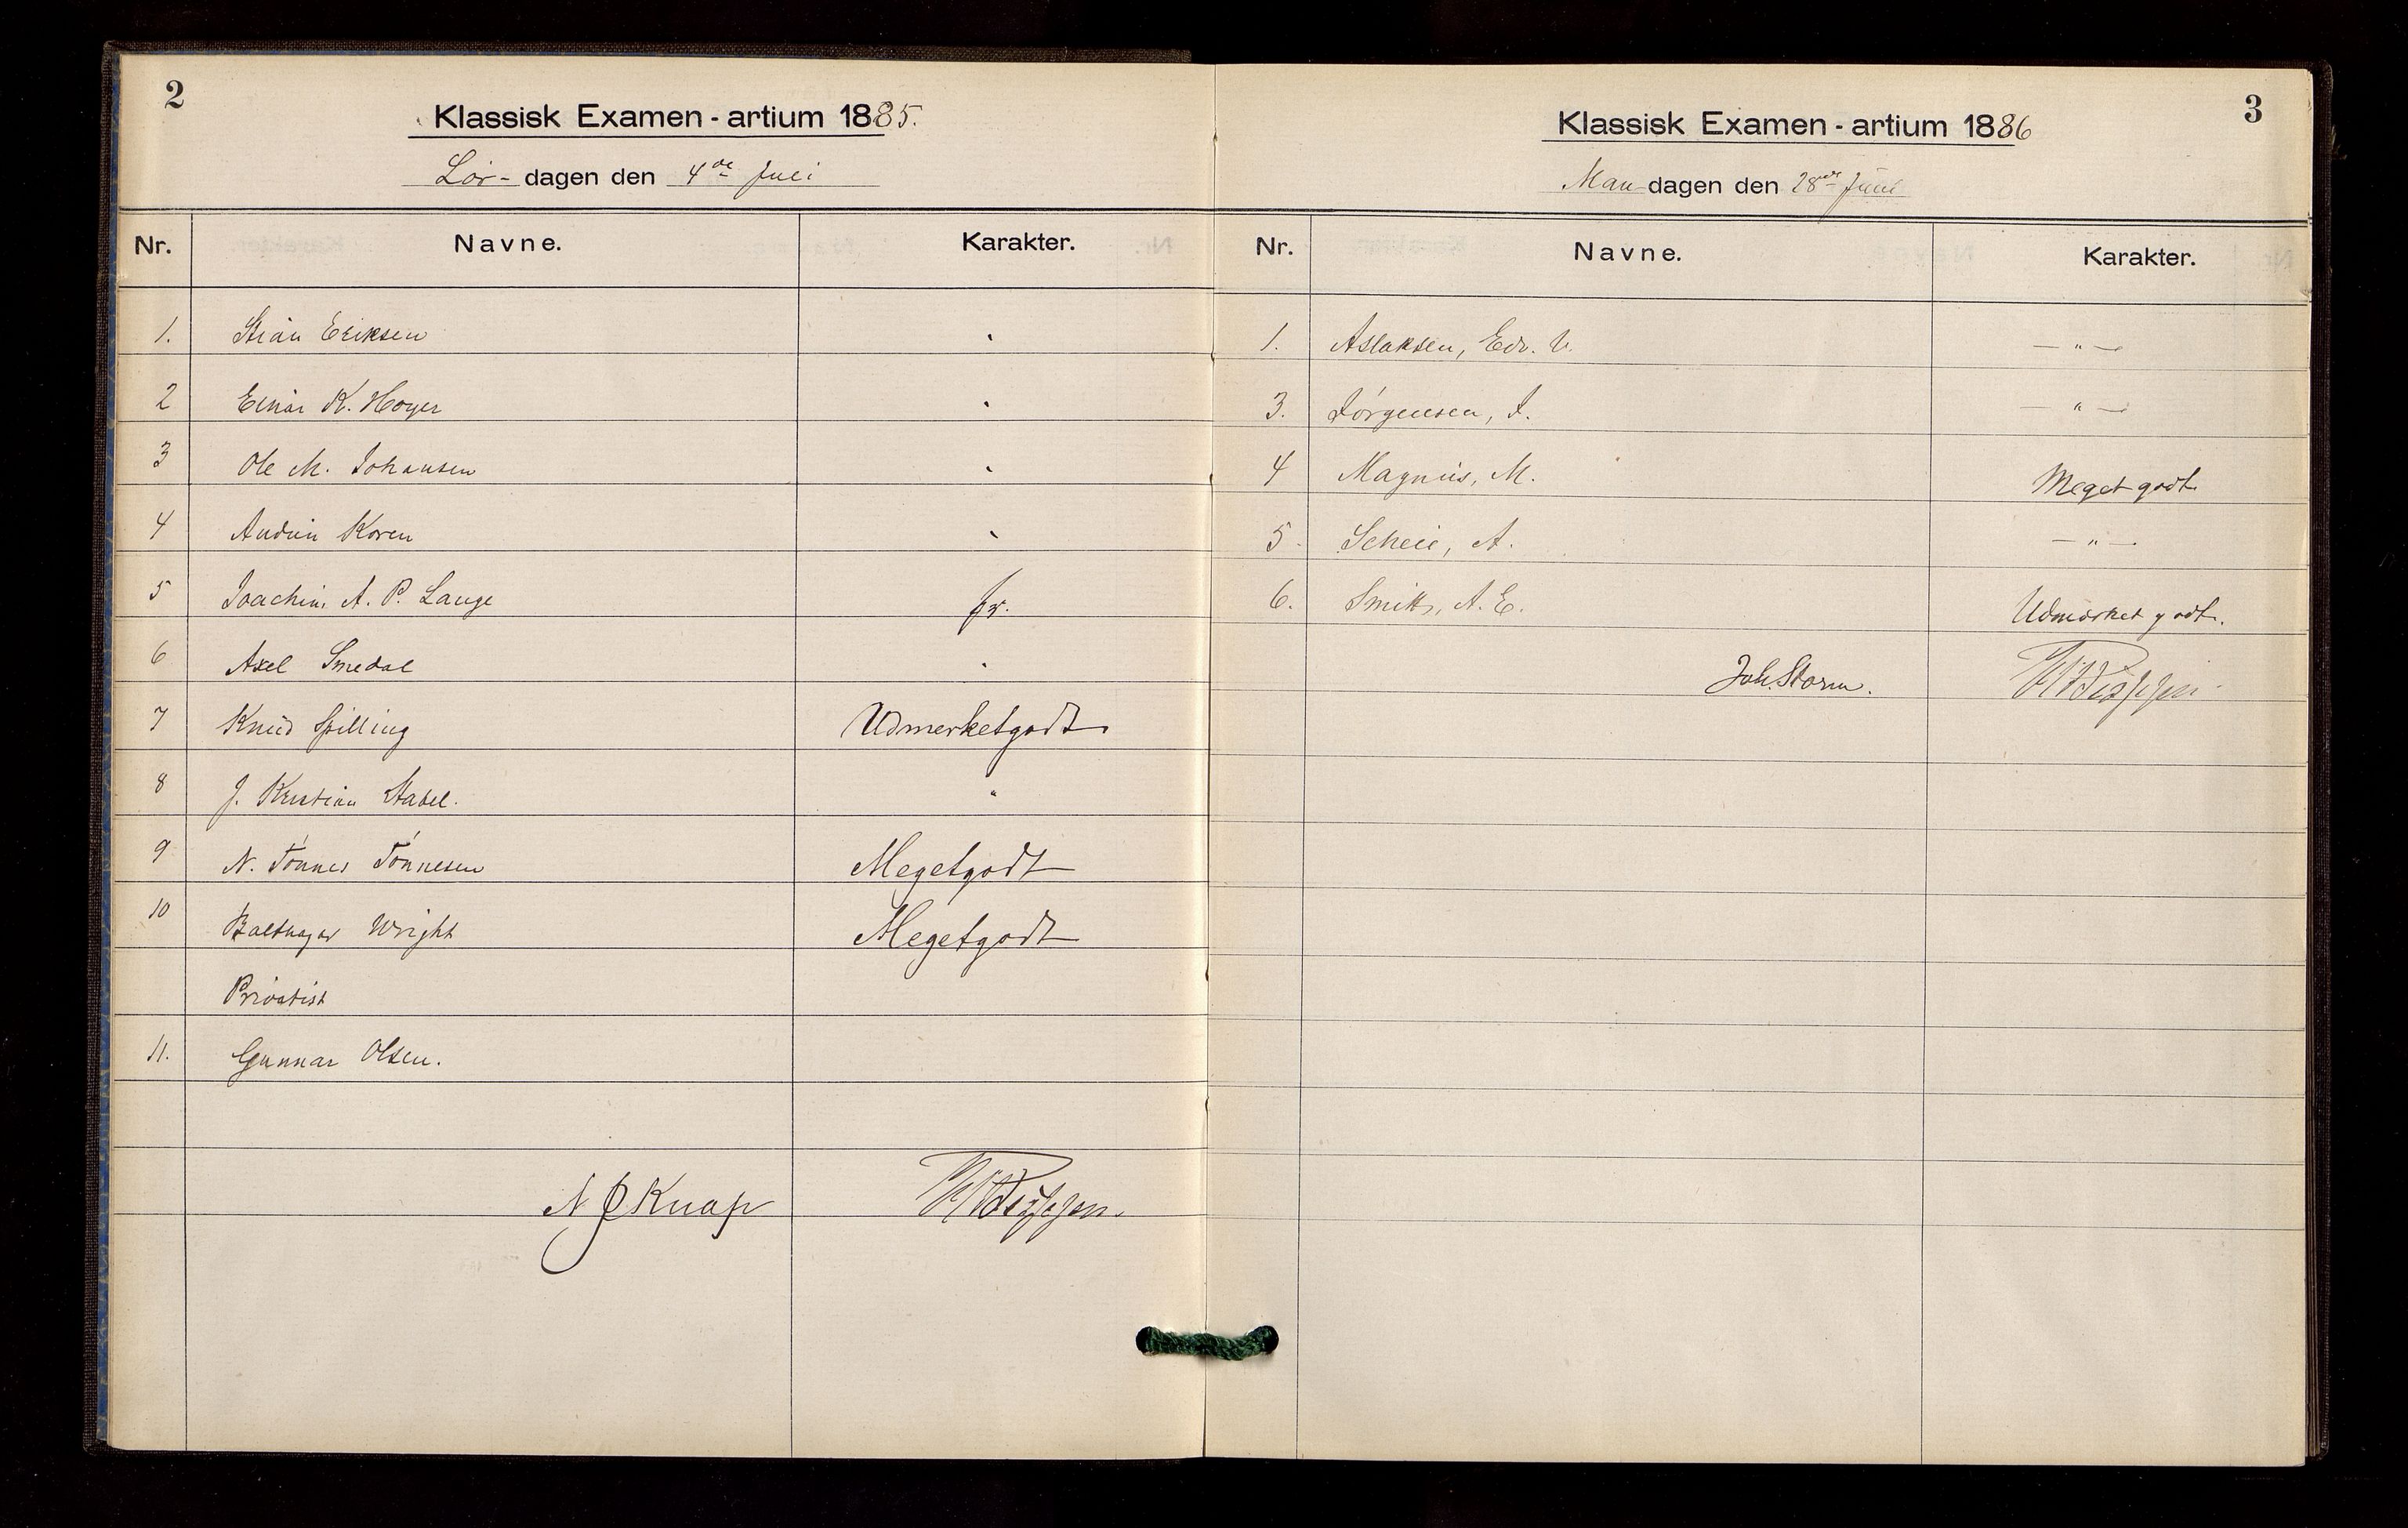 2
Klassisk Examen-artium 1885.
Lör- dagen den 4de Juli
Nr. Navne. Karakter.
1. Stian Eriksen
2 Einar K. Hoyer
3 Ole M. Johansen
4 Audun Koren
5 Joachim A. P. Lange fr.
6 Axel Smedal
7 Knud Spilling Udmerketgodt
8 J. Kristian Stabel. "
9 N. Tönnes Tönnesen Megetgodt
10 Balthazar Wright Megetgodt
Privatist
11. Gunnar Olsen.
N J Knap
3
Klassisk Examen-artium 1886
Man dagen den 28de Juni
Nr. Navne. Karakter.
1. Aslaksen, Edv. V. — " —
3. Jörgensen, J. — " —
4 Magnus, M. Meget godt
5 Scheie, A. — " —
6. Smith, A. E. Udmærket godt.
Joh. Storm.